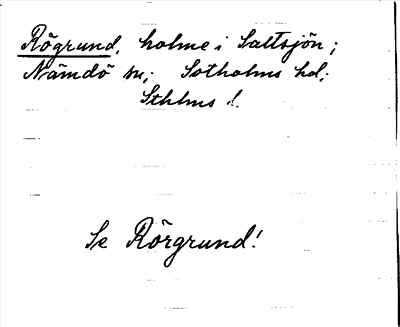 Rögrund, holme i Saltsjön;
Nämdö sn; Sotholms hd;
Sthlms l.
Se Rörgrund!